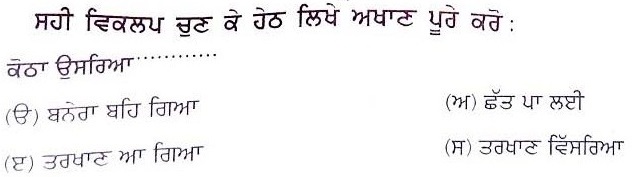 ਸਹੀ ਵਿਕਲਪ ਚੁਣ ਕੇ ਹੇਠ ਲਿਖੇ ਅਖਾਣ ਪੂਰੇ ਕਰੋ :
ਕੋਠਾ ਉਸਰਿਆ.............
(ੳ) ਬਨੇਰਾ ਬਹਿ ਗਿਆ (ਅ) ਛੱਤ ਪਾ ਲਈ
(ੲ) ਤਰਖਾਣ ਆ ਗਿਆ (ਸ) ਤਰਖਾਣ ਵਿੱਸਰਿਆ